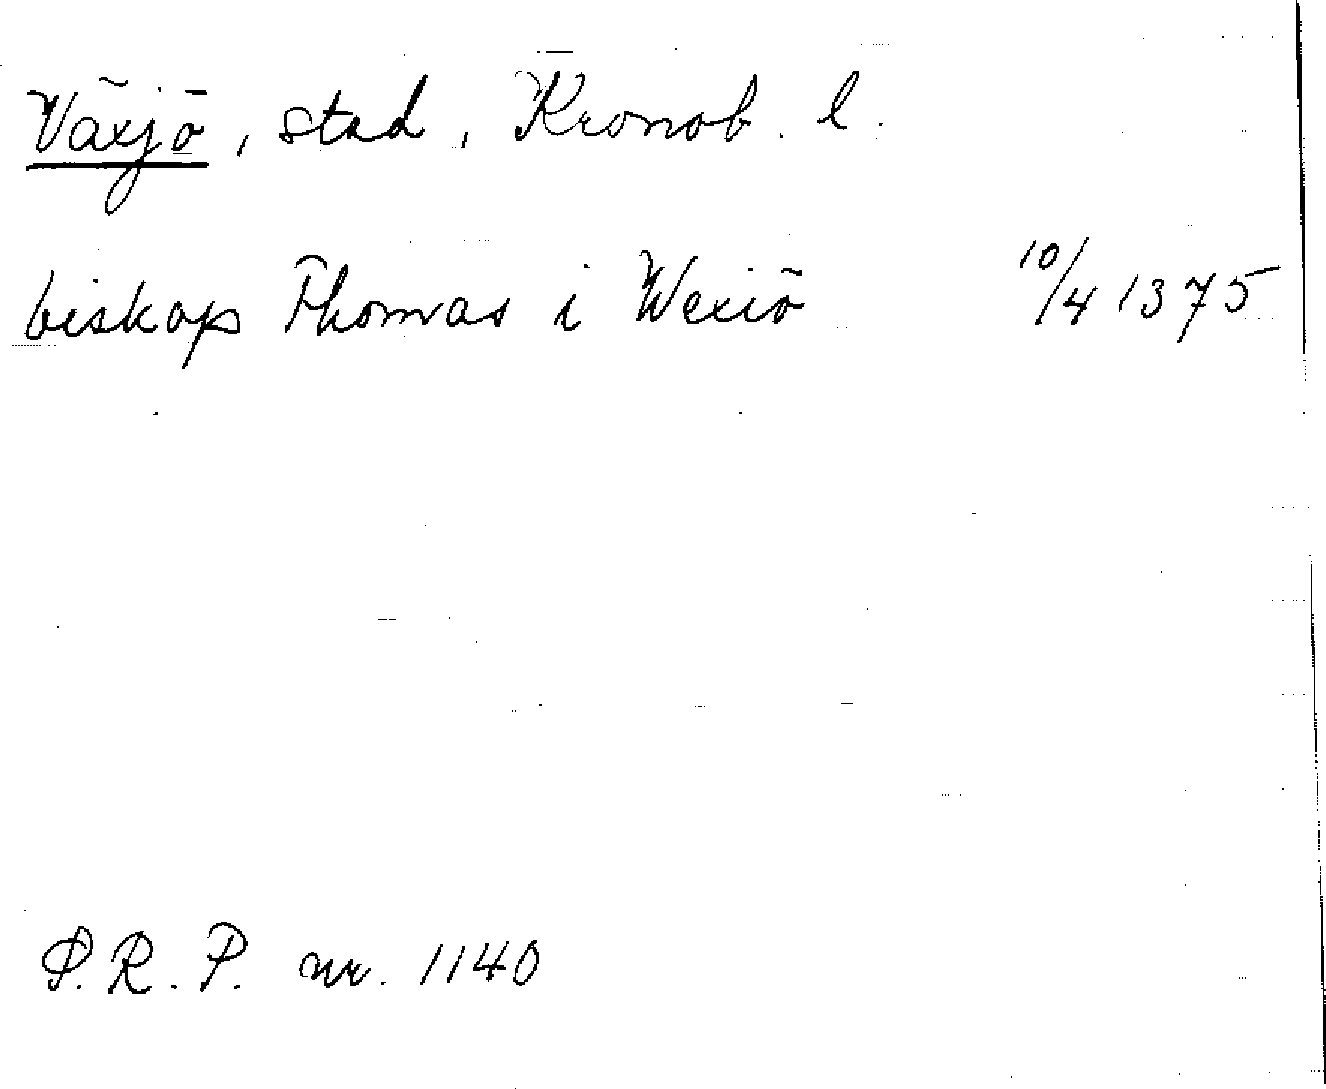 Växjö, stad, Kronob. l.
biskop Thomas i Wexiö 10/4 1375
S.R.P. nr. 1140